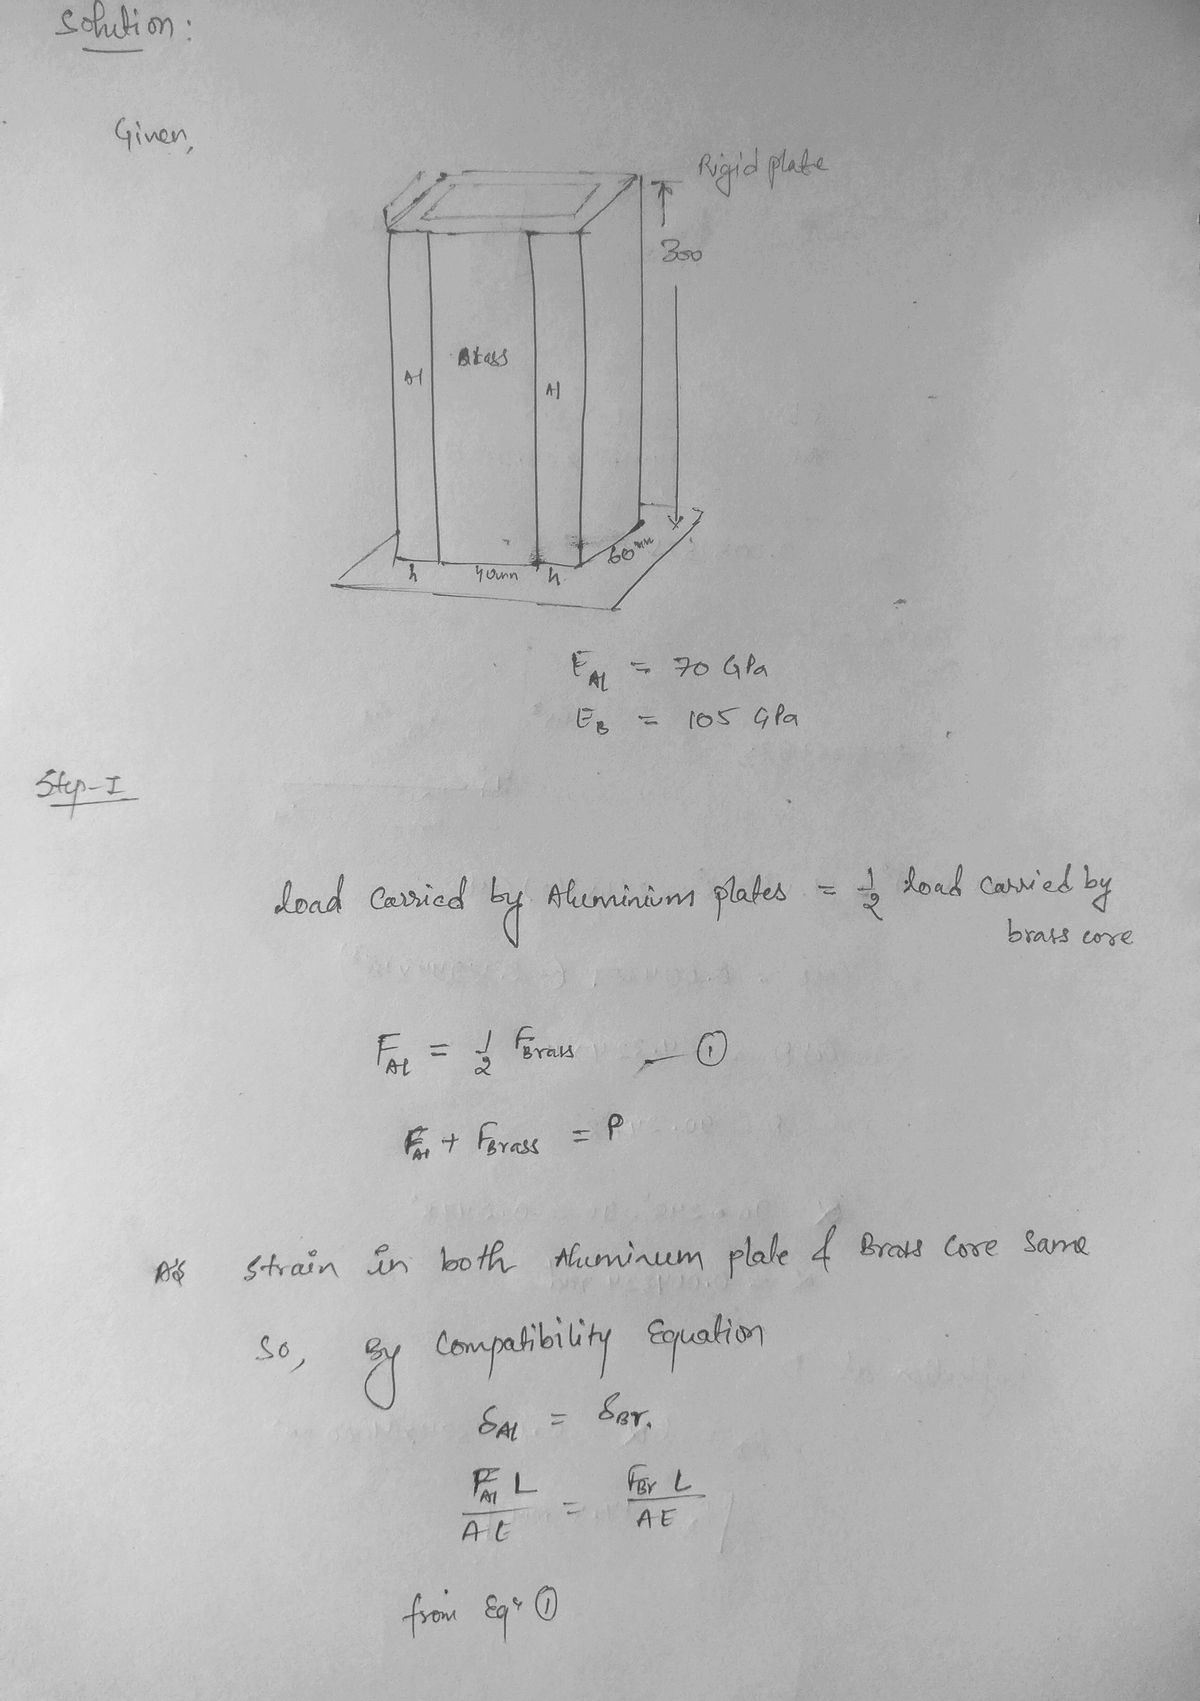 Solution:
Given,
Rigid plate
300
Brass
Al
Al
h 40mm h 60mm
E_Al = 70 GPa
E_B = 105 GPa
Step-I
load carried by Aluminium plates = 1/2 load carried by
brass core
F_Al = 1/2 F_Brass — ①
F_Al + F_Brass = P
As strain in both Aluminum plate & Brass core same
So, By Compatibility Equation
δ_Al = δ_Br.
F_Al L / AE = F_Br L / AE
from Eqn ①